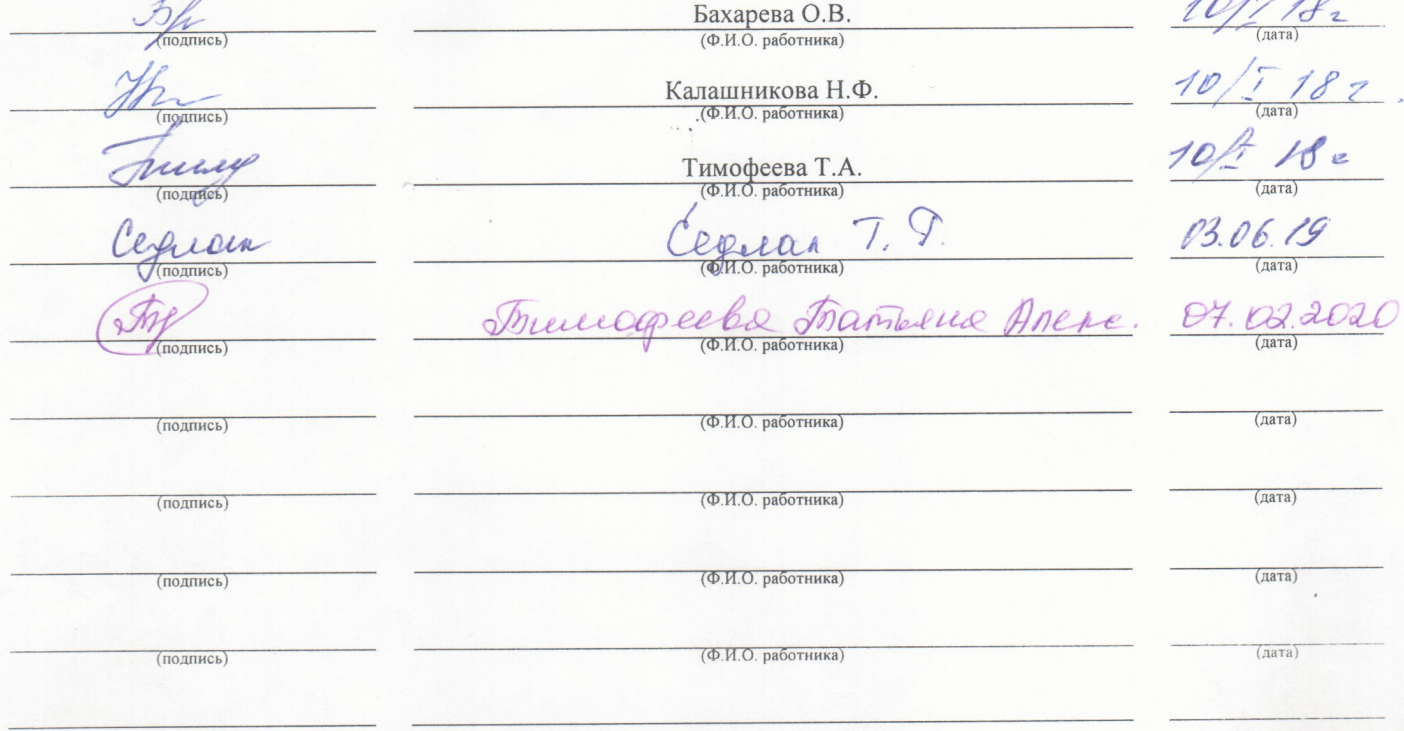 Бахарева О.В. 10/I 18г
(подпись) (Ф.И.О. работника) (дата)
Калашникова Н.Ф. 10/I 18 г.
(подпись) (Ф.И.О. работника) (дата)
Тимофеева Т.А. 10/I 18 г
(подпись) (Ф.И.О. работника) (дата)
Седлак Седлак Т. Г. 03.06.19
(подпись) (Ф.И.О. работника) (дата)
Тимофеева Татьяна Алекс. 07.02.2020
(подпись) (Ф.И.О. работника) (дата)
(подпись) (Ф.И.О. работника) (дата)
(подпись) (Ф.И.О. работника) (дата)
(подпись) (Ф.И.О. работника) (дата)
(подпись) (Ф.И.О. работника) (дата)